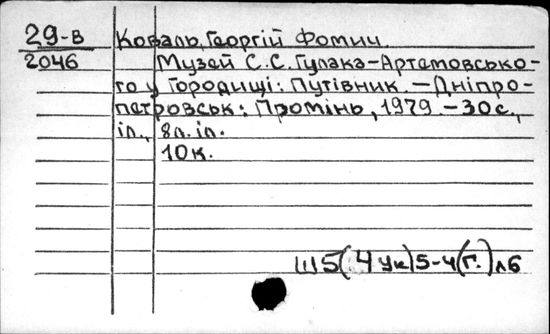 29-в
2046
Коваль, Георгій Фомич.
Музей С.С. Гулака-Артемовсько-
го у Городищі: Путівник. — Дніпро-
петровськ: Промінь, 1979. — 30 с.,
іл., 8 л. іл.
10 к.
Ш5(4Ук)5-4(Г.)л6